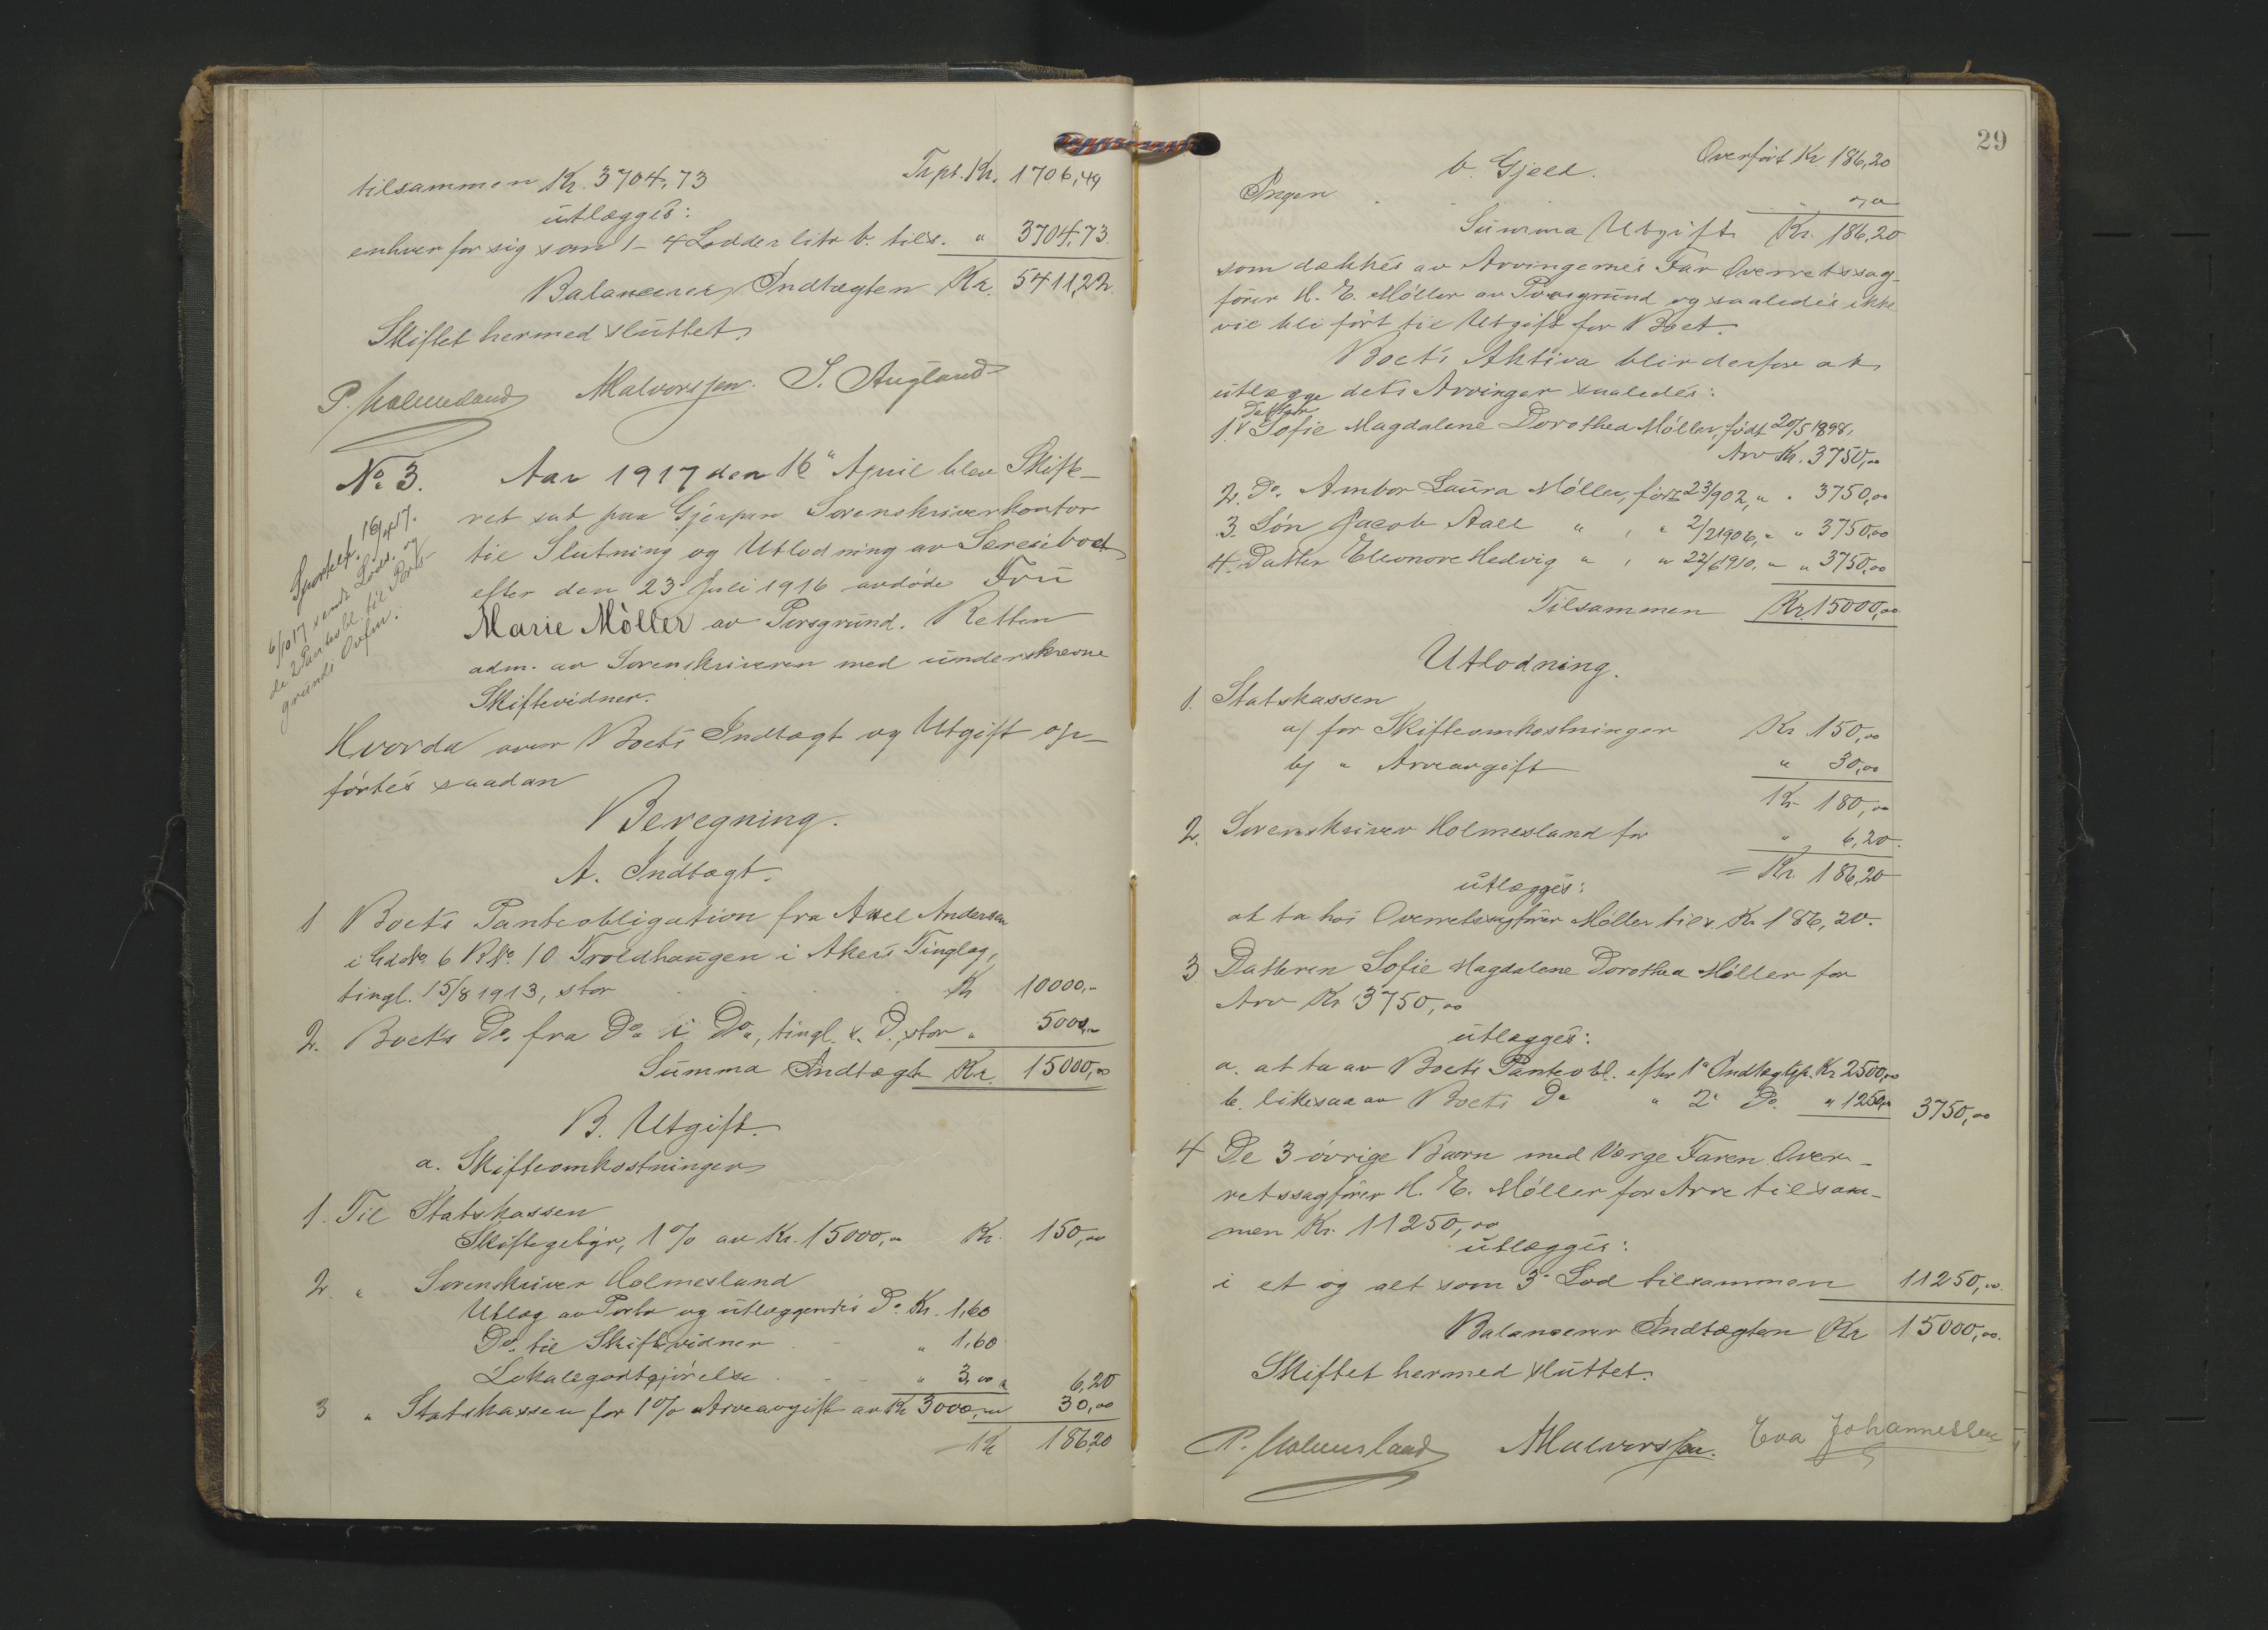 tilsammen Kr. 3704,73 Trpt. Kr. 1706,49
utlægges:
enhver for sig som 1-4 Lodder litr b. tils. " 3704,73.
Balancerer Indtægten Kr. 5411,22.
Skiftet hermed sluttet.
P. Holmesland AHalvorssen. S. Augland
No 3. Aar 1917 den 16" April blev Skifte-
ret sat paa Gjerpen Sorenskriverkontor
til Slutning og Utlodning av Særeieboet
efter den 23 Juli 1916 avdøde Fru
Marie Möller av Porsgrund. Retten
adm. av Sorenskriveren med underskrevne
Skiftevidner.
Sportelf. 16/4 17.
6/10 17 sendt Lods. og
de 2 Panteobl. til Pors-
grunds Ovfm.
Hvorda over Boets Indtægt og Utgift op-
førtes saadan
Beregning.
A. Indtægt.
1 Boets Panteobligation fra Axel Andersen
i Gd No. 6 B No. 10 Troldhaugen i Akers Tinglag,
tingl. 15/8 1913, stor Kr 10000,-
2. Boets Do. fra Do i Do, tingl. s. D. stor " 5000,-
Summa Indtægt Kr. 15000,00
B. Utgift.
a. Skifteomkostninger
1. Til Statskassen
Skiftegebyr, 1% av Kr. 15000,00 Kr. 150,00
2. " Sorenskriver Holmesland
Utlæg av Porto og utlæggendes Do Kr. 1,60
Do. til Skiftevidner " 1,60
Lokalegodtgjörelse " 3,00 6,20
3 " Statskassen for 1% Arveavgift av Kr 3000,00 30,00
Kr 186,20
29
Overført Kr 186,20
b. Gjeld.
Ingen " "
Summa Utgift Kr. 186,20
som dækkes av Arvingernes Far Overretssag-
fører H. E. Möller av Porsgrund og saaledes ikke
vil bli ført til Utgift for Boet.
Boets Aktiva blir derfor at
utlægge dets Arvinger saaledes:
Datter
1. Sofie Magdalene Dorothea Möller, født 20/5 1898,
Arv Kr. 3750,00
2. Do. Ambor Laura Möller, født 23/ 902, " " 3750,00
3. Søn Jacob Aall " , " 2/2 1906, " " 3750,00
4. Datter Eleonore Hedvig " , " 22/6 1910, " " 3750,00
Tilsammen Kr. 15000,00
Utlodning.
1. Statskassen
a/ for Skifteomkostninger Kr 150,00
b/ " Arveavgift " 30,00
Kr 180,00
2. Sorenskriver Holmesland for " 6,20.
= Kr. 186,20
utlægges:
at ta hos Overretssagfører Möller tils. Kr 186,20.
3 Datteren Sofie Magdalene Dorothea Möller for
Arv Kr 3750,00
utlægges:
a. at ta av Boets Panteobl. efter 1" Indtægtsp. Kr 2500,00
b. likesaa av Boets Do " 2" Do. " 1250,00 3750,00
4 De 3 övrige Barn med Værge Faren Over-
retssagfører H. E. Möller for Arv tilsam-
men Kr. 11250,00
utlægges:
i et og alt som 3" Lod tilsammen 11250,00.
Balancerer Indtægten Kr 15000,00.
Skiftet hermed sluttet.
P. Holmesland AHalvorssen. Eva Johannessen